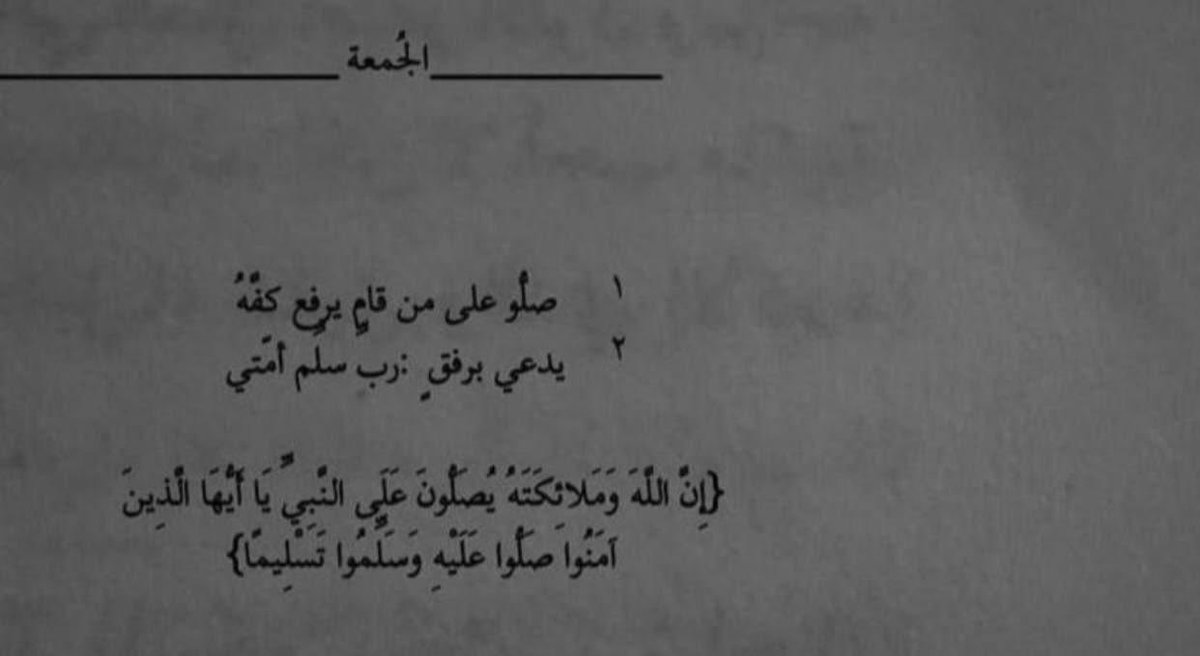 الجُمعة
١ صلُّو على من قامٍ يرفع كفَّهُ
٢ يدعي برفقٍ :ربِ سلِّم أمَّتي
{إِنَّ اللَّهَ وَمَلائِكَتَهُ يُصَلُّونَ عَلَى النَّبِيِّ يَا أَيُّهَا الَّذِينَ
آمَنُوا صَلُّوا عَلَيْهِ وَسَلِّمُوا تَسْلِيمًا}